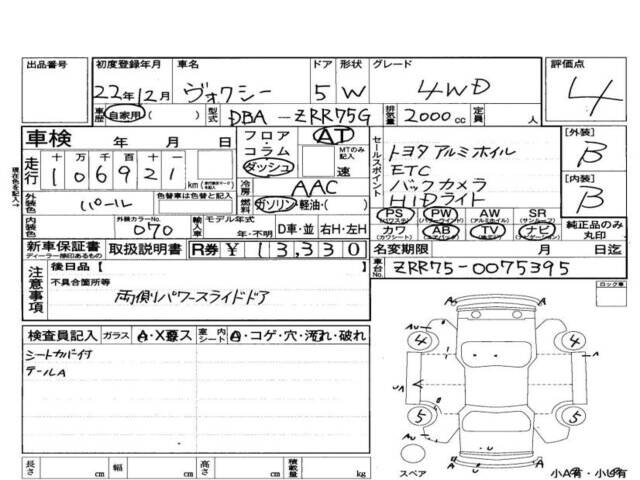 出品番号 初度登録年月 車名 ドア 形状 グレード 評価点
22年12月 ヴォクシー 5 W 4WD 4
車歴 自家用( ) 型式 DBA-ZRR75G 排気量 2000cc 定員 人
車検 年 月 日 フロア・コラム・ダッシュ AT MTのみ記入 速
走行 十 万 千 百 十 一
106921 km
冷房 AAC
外装色 パール 色替車は色替と記入 燃料 ガソリン・軽油・( )
内装色 外装カラーNo. 070 輸入車 モデル年式 年・不明 D車・並 右H・左H
セールスポイント
トヨタアルミホイル
ETC
バックカメラ
HIDライト
PS (パワステ) PW (パワーウインド) AW (アルミホイル) SR (サンルーフ)
カワ (カワシート) AB (エアバック) TV ナビ (ナビゲーション)
[外装] B
[内装] B
純正品のみ丸印
新車保証書 ディーラー捺印あるもの 取扱説明書 R券 ¥13,330
名変期限 月 日迄
車台No. ZRR75-0075395
注意事項 後日品【
不具合箇所等
両側パワースライドドア
現在色を記入→
ロック車
検査員記入 ガラス A・X・ヒス 室内シート A・コゲ・穴・汚れ・破れ
シートカバー付
テールA
4 4
5 5
スペア
小A有・小U有
長さ cm 幅 cm 高さ cm 積載量 kg